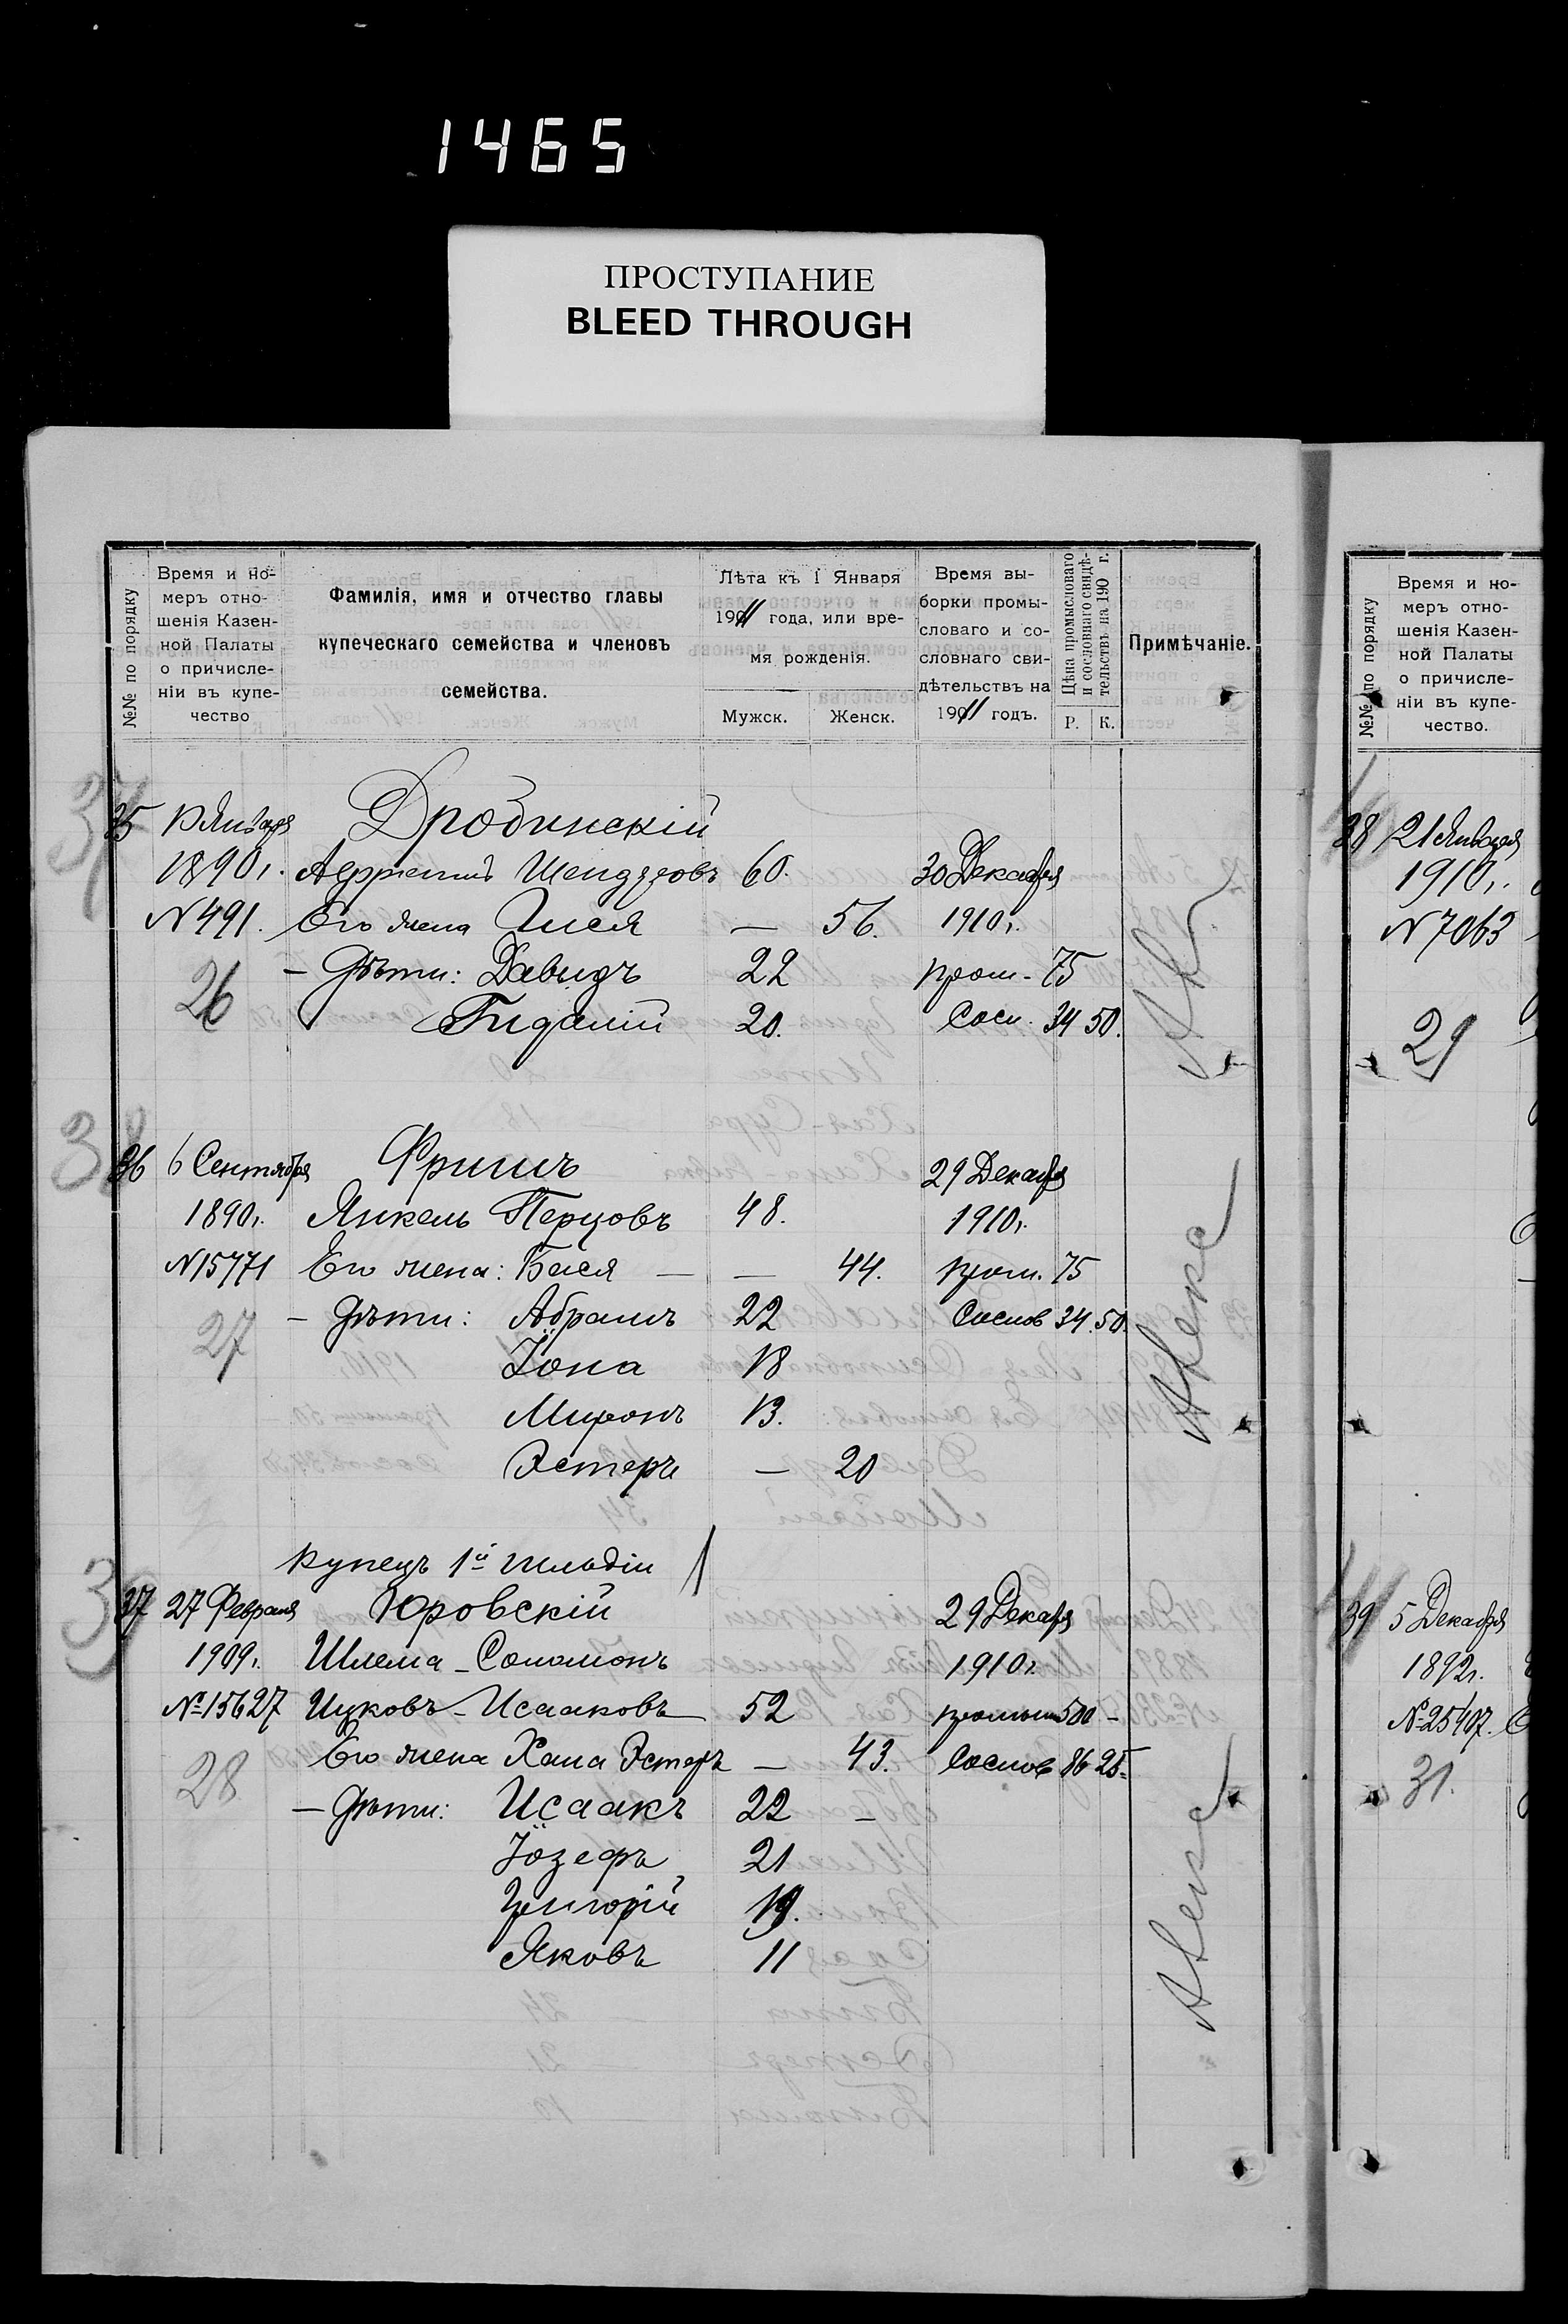 1465
ПРОСТУПАНИЕ
BLEED THROUGH
№№ по порядку
Время и но-
меръ отно-
шенія Казен-
ной Палаты
о причисле-
ніи въ купе-
чество
Фамилія, имя и отчество главы
купеческаго семейства и членовъ
семейства.
Лѣта къ 1 Января
1911 года, или вре-
мя рожденія.
Мужск. Женск.
Время вы-
борки промы-
словаго и со-
словнаго сви-
дѣтельствъ на
1911 годъ.
Цѣна промысловаго
и сословнаго свидѣ-
тельствъ на 190 г.
Р. К.
Примѣчаніе.
37
35 Января Дробинскій
1890г. 60. 30 Декабря
N 491. Его жена 56. 1910г.
— Дѣти: Давидъ 22 пром. 75
26 Гидалій 20. Сосл. 34 50.
38
36 6 Сентября Фришъ 29 Декабря
1890г. Янкель Перцовъ 48. 1910г.
N 15771 Его жена: Бася — — 44. пром. 75
— Дѣти: Абрамъ 22 Сослов 34.50.
27 Іона 18
Миронъ 13.
Эстеръ — 20
39
Купецъ 1й гильдіи
37 27 Февраля Юровскій 29 Декабря
1909г. Шлема-Соломонъ 1910г.
№ 15627 Ицковъ-Исааковъ 52 промысл 500 —
Его жена Хана Эстеръ — 43. Сослов 86 25
28 — Дѣти: Исаакъ 22 —
Іозефъ 21
Григорій 19.
Яковъ 11
№№ по порядку
Время и но-
меръ отно-
шенія Казен-
ной Палаты
о причисле-
ніи въ купе-
чество.
38 21 Января
1910г.
N 7063
29
39 5 Декабря
1892г.
№ 25407.
31.